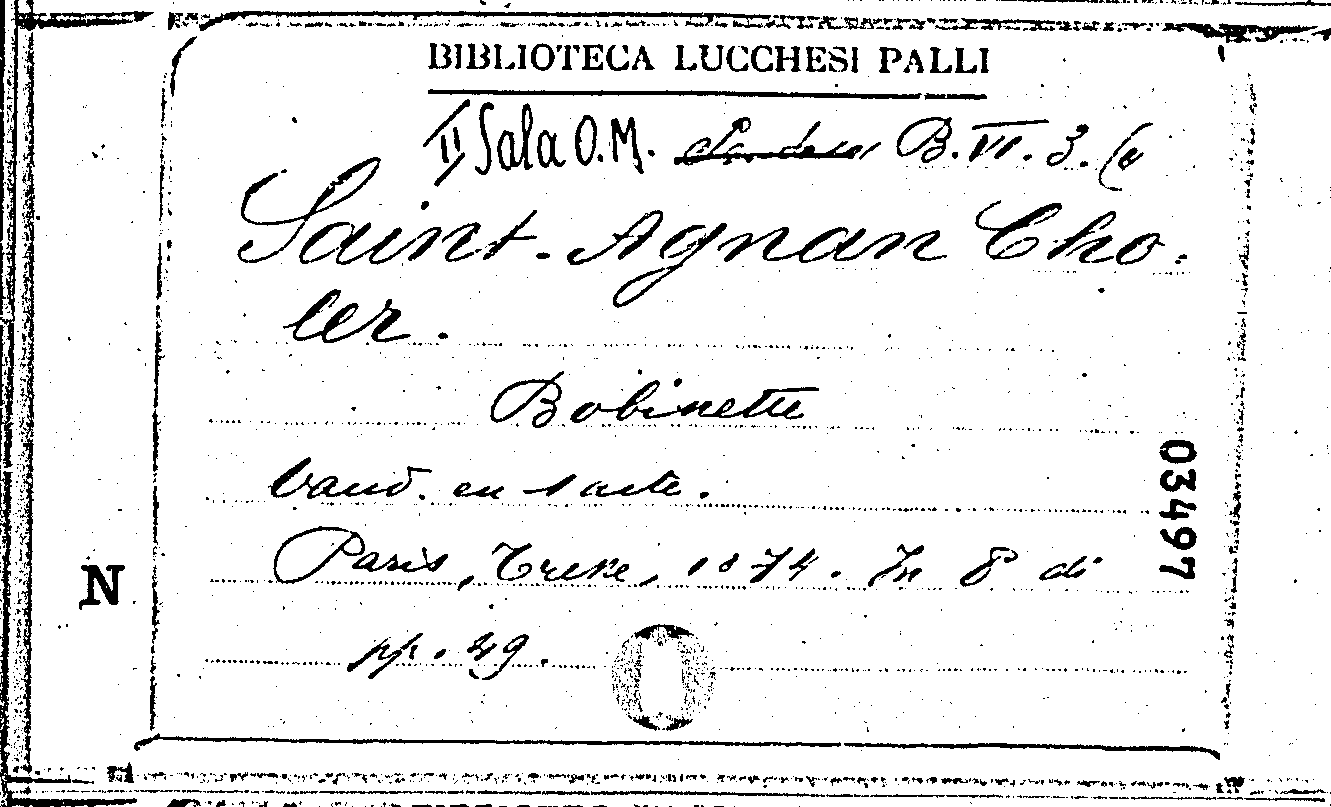 BIBLIOTECA LUCCHESI PALLI
II Sala O.M. B.VI.3.(
Saint-Agnan Cho-
ler.
Bobinette
Vaud. en 1 acte.
Paris, Tresse, 1874. In 8° di
pp. 49.
N
03497